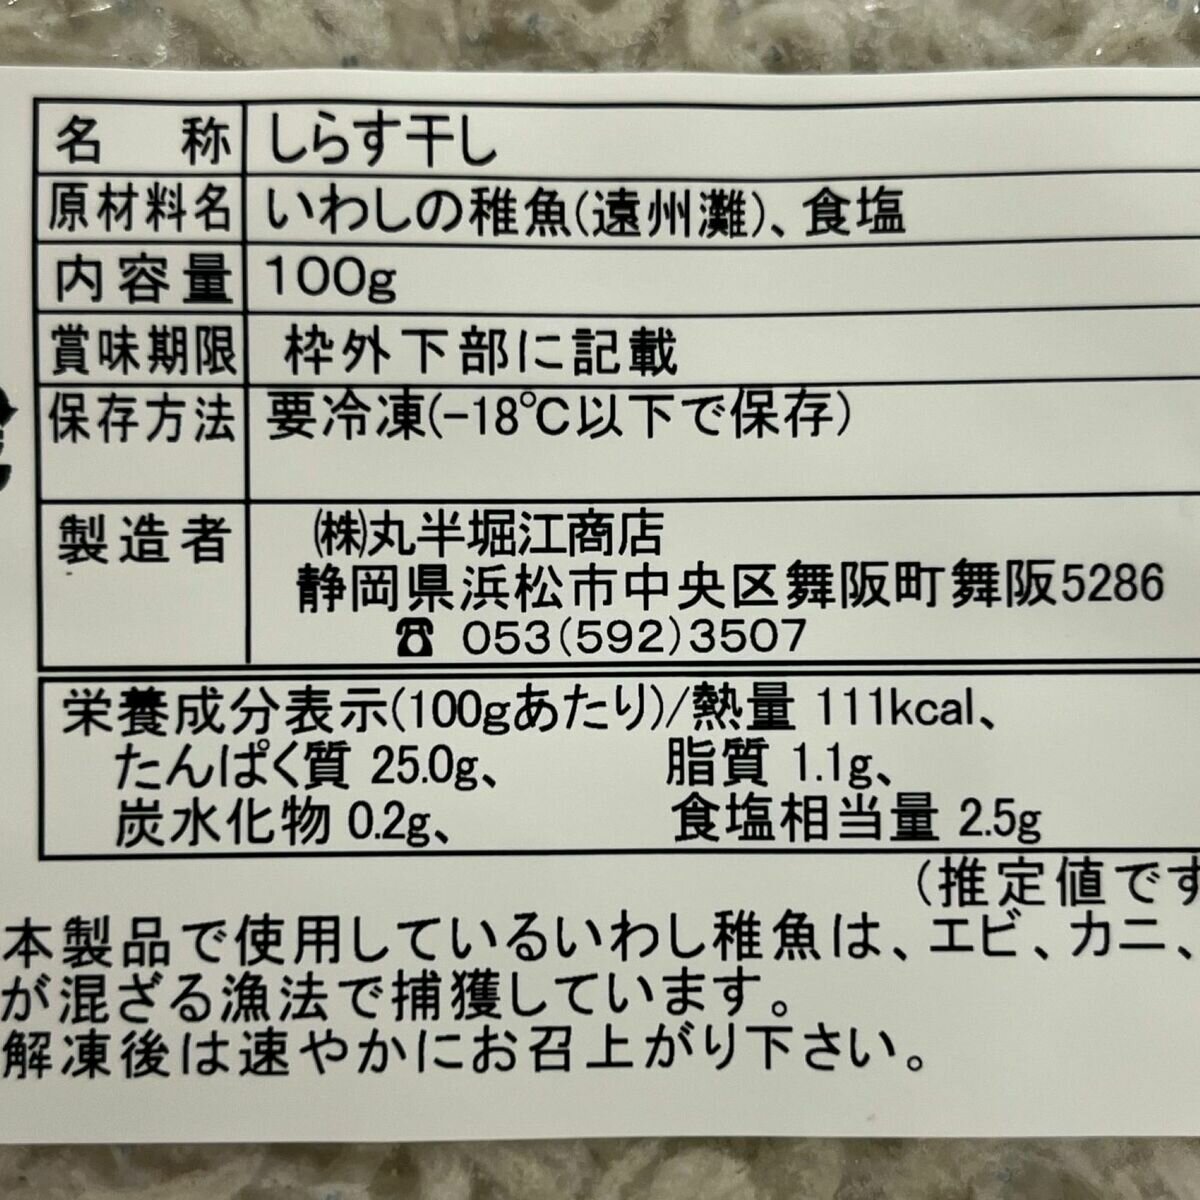 名称 しらす干し
原材料名 いわしの稚魚(遠州灘)、食塩
内容量 100g
賞味期限 枠外下部に記載
保存方法 要冷凍(-18℃以下で保存)
製造者 ㈱丸半堀江商店
静岡県浜松市中央区舞阪町舞阪5286
☎ 053(592)3507
栄養成分表示(100gあたり)/熱量 111kcal、
たんぱく質 25.0g、 脂質 1.1g、
炭水化物 0.2g、 食塩相当量 2.5g
(推定値です
本製品で使用しているいわし稚魚は、エビ、カニ、
が混ざる漁法で捕獲しています。
解凍後は速やかにお召上がり下さい。